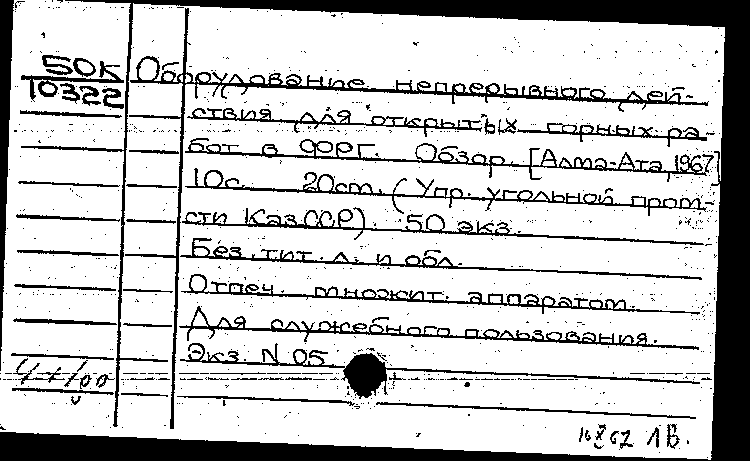 50К Оборудование непрерывного дей-
10322 ствия для открытых горных ра-
бот в ФРГ. Обзор. [Алма-Ата, 1967]
10с. 20см. (Упр. угольной пром-
сти Каз.ССР). 50 экз.
Без тит. л. и обл.
Отпеч. множит. аппаратом.
Для служебного пользования.
Экз. N 05
1В.